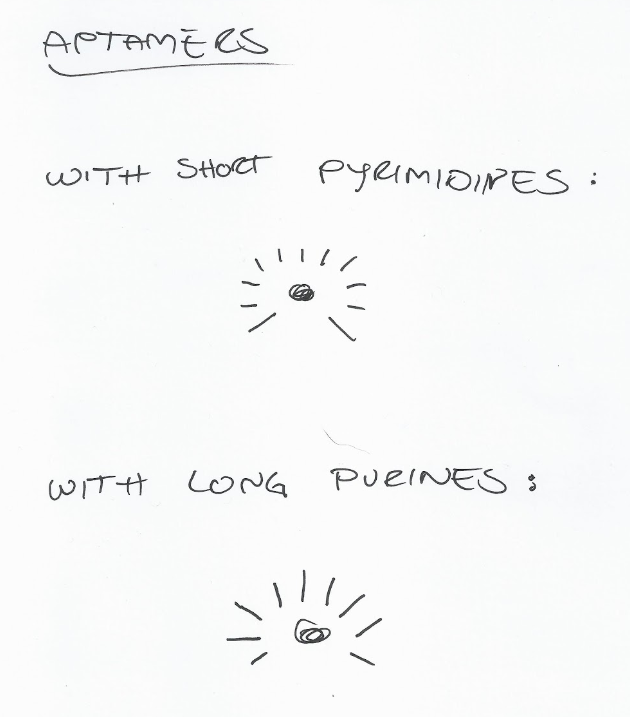 APTAMERS
WITH SHORT PYRIMIDINES :
WITH LONG PURINES :